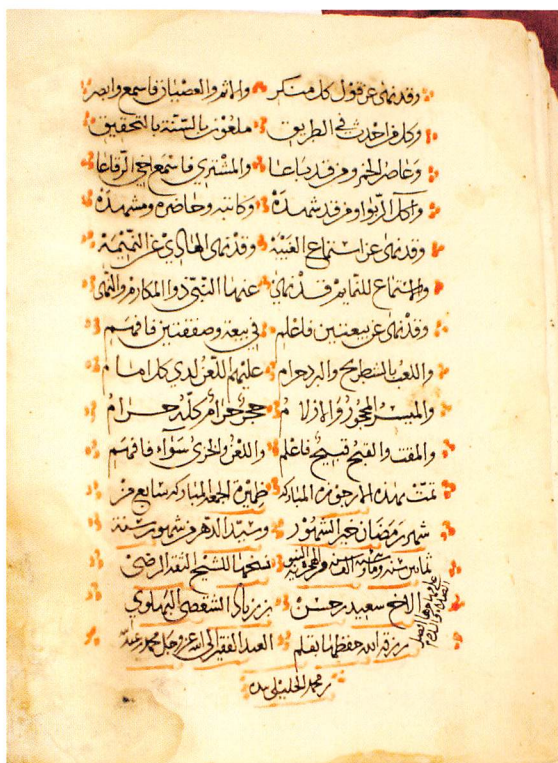 وقد نهى عن قول كل منكر والاثم والعصيان فاسمع وابصر
وكل من احدث في الطريق ملعون بالسنة بالتحقيق
وعاصر الخمر ومن قد باعا والمشتري فاسمع اخي الرقاعا
واكل الربوا ومن قد شهده وكاتبه وحاضره ومشهده
وقد نهى عن استماع الغيبة وقد نهى الهادي عن النميمة
والاستماع للنمايم قد نهى عنها النبي ذو المكارم والنهى
وقد نهى عن بيعتين فاعلم في بيعة وصفقتين فافهم
واللعب بالشطرنج والنرد حرام عليهم اللعن لدي كل امام
والميسر المحجور والازلام حجر حرام كله حرام
والمقت والقبح قبيح فاعلم واللعن والخزي سواء فافهم
تمت بهذه الارجوزة المباركة ظهيرة الجمعة المباركة سابع من
شهر رمضان خير الشهور وسيد الدهر وشهور سنة
ثمانين سنة ومائتين سنة والف سنة من الهجرة نسخها للشيخ الثقة الرضي
الاخ سعيد بن حسن بن زياد الشقصي البهلوي
رزقه الله حفظها بقلم العبد الفقير الى الله عز وجل محمد بن عبدالله
بن محمد الخليلي بيده